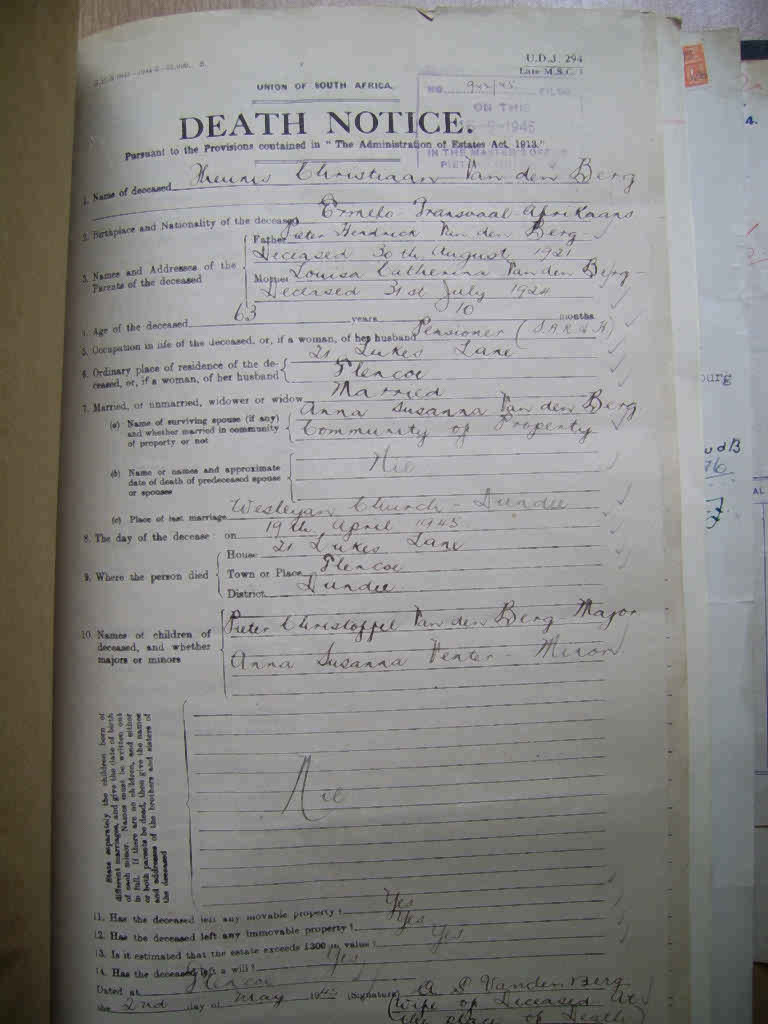 U.D.J. 294
Late M.S.C. 1
UNION OF SOUTH AFRICA.
NO. 942/45 FILED
ON THIS
15-9-1945
IN THE MASTER'S OFFICE
DEATH NOTICE.
Pursuant to the Provisions contained in "The Administration of Estates Act, 1913."
1. Name of deceased Theunis Christiaan Van den Berg
2. Birthplace and Nationality of the deceased Ermelo Transvaal Afrikaans
3. Names and Addresses of the Parents of the deceased
Father Pieter Hendrick Van den Berg
Deceased 30th August 1921
Mother Louisa Catherina Van den Berg
Deceased 31st July 1924
4. Age of the deceased 63 years 10 months
5. Occupation in life of the deceased, or, if a woman, of her husband Pensioner (S.A.R & H)
6. Ordinary place of residence of the de-
ceased, or, if a woman, of her husband
21 Lukes Lane
Glencoe
7. Married, or unmarried, widower or widow Married
(a) Name of surviving spouse (if any)
and whether married in community
of property or not
Anna Susanna Van den Berg
Community of Property
(b) Name or names and approximate
date of death of predeceased spouse
or spouses
Nil
(c) Place of last marriage Wesleyan Church - Dundee
8. The day of the decease on 19th April 1945
9. Where the person died
House 21 Lukes Lane
Town or Place Glencoe
District Dundee
10. Names of children of
deceased, and whether
majors or minors
Pieter Christoffel Van den Berg Major
Anna Susanna Venter - Minor
State separately the children born of
different marriages, and give the date of birth
of each minor. Names must be written out
in full. If there are no children, and either
or both parents be dead, then give the names
and addresses of the brothers and sisters of
the deceased
Nil
11. Has the deceased left any movable property? Yes
12. Has the deceased left any immovable property? Yes
13. Is it estimated that the estate exceeds £300 in value? Yes
14. Has the deceased left a will? Yes
Dated at Glencoe
the 2nd day of May 1945 (Signature) A S Van den Berg
(Wife of Deceased At
the place of Death)